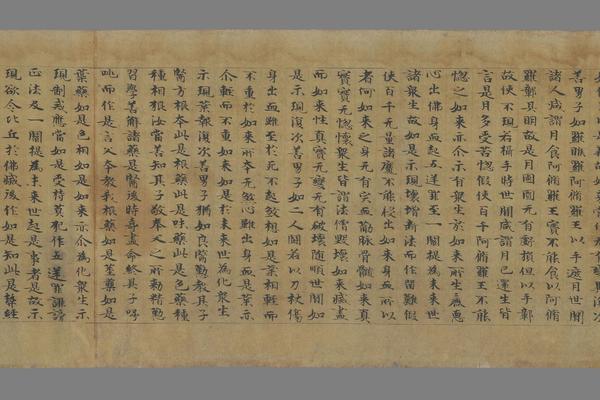 善男子如羅睺羅阿脩羅王以手遮月世間
諸人咸謂月食阿脩羅王實不能食以阿脩
羅鄣其明故是月團圓无有虧損但以手鄣
故使不現若攝手時世間咸謂月已還生皆
言是月多受苦惱假使百千阿脩羅王不能
惱之如來亦尒示有衆生於如來所生麁惡
心出佛身血起五逆罪至一闡提爲未來世
諸衆生故如是示現壞僧斷法而作留難假
使百千无量諸魔不能侵出如來身血所以
者何如來之身无有宍血筋脉骨髓如來真
實實无惱壞衆生皆謂法僧毀壞如來滅盡
而如來性真實无變无有破壞隨順世間如
是示現復次善男子如二人鬪若以刀杖傷
身出血雖至於死不起煞想如是業相輕而
不重於如來所本无煞心雖出身血是業亦
尒輕而不重如來如是於未來世爲化衆生
示現業報復次善男子猶如良醫勤教其子
醫方根本此是根藥此是莖藥此是色藥種
種相貌汝當善知其子敬奉父之所勑精勤
習學善解諸藥是醫後時壽盡命終其子呼
咷而作是言父本教我根藥如是莖藥如是
葉藥如是色相如是如來亦尒爲化衆生示
現制戒應當如是受持莫犯作五逆罪誹謗
正法及一闡提爲未來世起是事者是故示
現欲令比丘於佛滅後作如是知此是契經